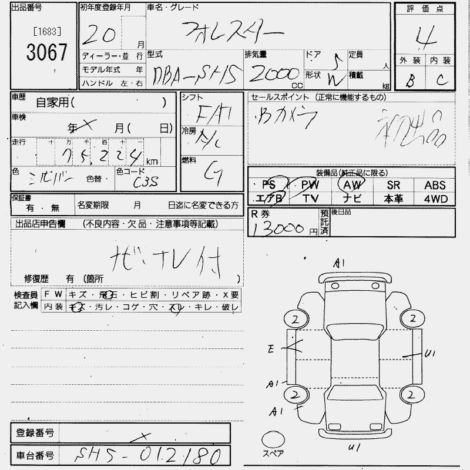 出品番号
[1683]
3067
初年度登録年月
20年
月
ディーラー・並行
モデル年式 年
ハンドル 左・右
車名・グレード
フォレスター
型式
DBA-SH5
排気量
2000
CC
ドア
5
形状
W
定員
人
積載
kg
評価点
4
外装 内装
B C
車歴
自家用( )
車検
年 × 月( 日)
走行
十 万 千 百 十
75224 km
色
シルバー
色替
色コード
C3S
シフト
F/A
冷房
A/C
燃料
G
セールスポイント(正常に機能するもの)
Bカメラ
装備品(純正品に限る)
PS PW AW SR ABS
エアB TV ナビ 本革 4WD
保証書
有・無
名変期限 月 日迄に名変できる方
R券
13000円
預託済
後日品
出品店申告欄 (不良内容・欠品・注意事項等記載)
ナビ・テレ付
修復歴 有 (箇所
検査員
記入欄
FW キズ・飛石・ヒビ割・リペア跡・X要
内装 キズ・汚レ・コゲ・穴・スレ・キレ・破レ
登録番号
×
車台番号
SH5-012180
A1
2
2
E
U1
A1
2
2
A1
スペア
U1